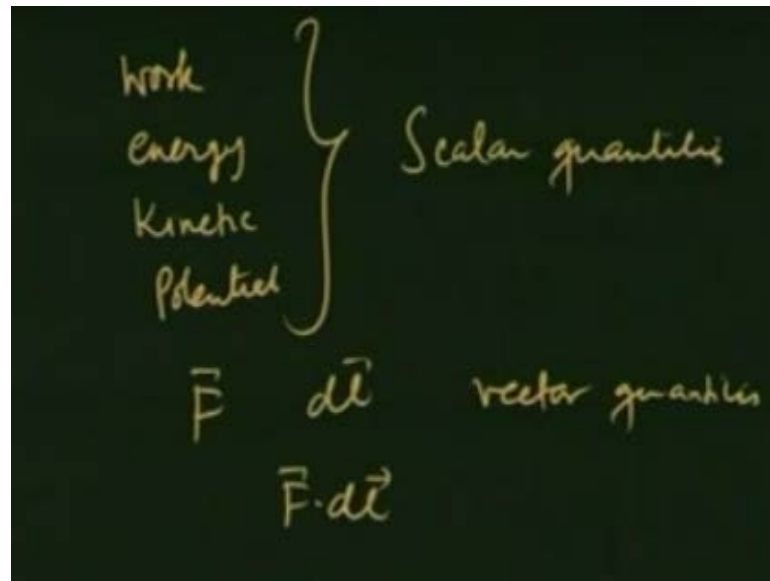 Work
energy
Kinetic
Potential
} Scalar quantities
F⃗ dl⃗ vector quantities
F⃗·dl⃗